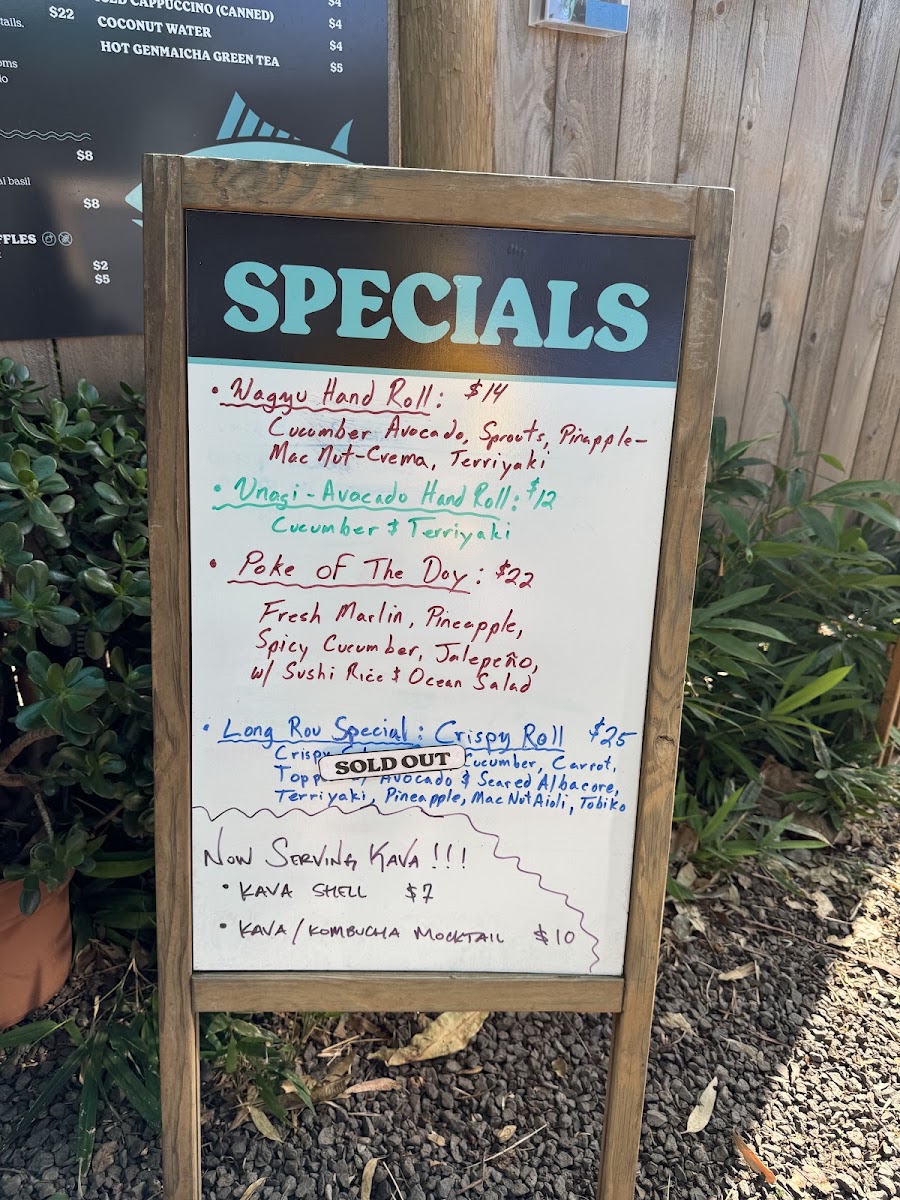 $22
tails.
CAPPUCCINO (CANNED)
$4
COCONUT WATER
$4
HOT GENMAICHA GREEN TEA
$4
$5
$8
basil
$8
$2
$5
SPECIALS
• Wagyu Hand Roll: $14
Cucumber Avocado, Sprouts, Pinapple-
Mac Nut-Crema, Terriyaki
• Unagi-Avocado Hand Roll: $12
Cucumber & Terriyaki
• Poke Of The Day: $22
Fresh Marlin, Pineapple,
Spicy Cucumber, Jalepeño,
w/ Sushi Rice & Ocean Salad
• Long Rou Special: Crispy Roll $25
Crispy Cucumber, Carrot,
SOLD OUT
Avocado & Seared Albacore,
Terriyaki, Pineapple, Mac Nut Aioli, Tobiko
NOW SERVING KAVA!!!
• KAVA SHELL $7
• KAVA/KOMBUCHA MOCKTAIL $10